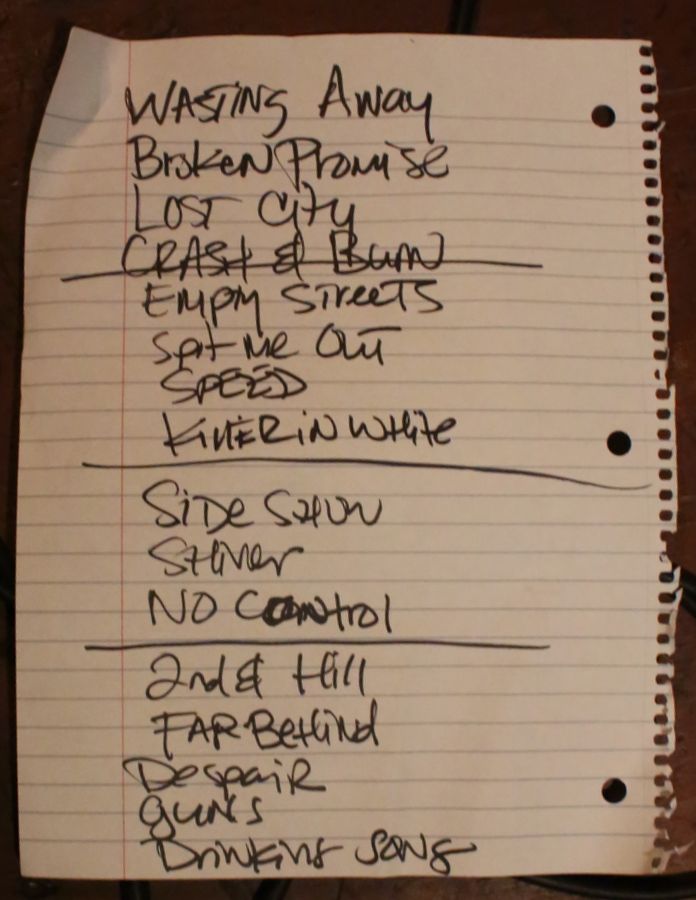 WASTING Away
Broken Promise
LOST City
CRASH & BURN
Empty Streets
Spit me Out
SPEED
KILLER iN WHite
SiDe SHOW
SHiver
NO Control
2nd & Hill
FAR BeHind
Despair
guns
Drinking song